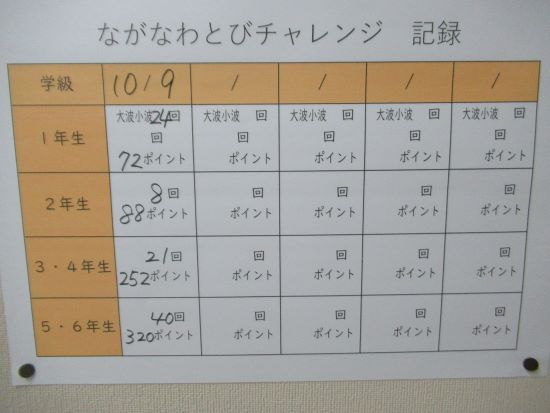 ながなわとびチャレンジ　記録
学級 10/9 / / / /
1年生 大波小波 24回 大波小波 回 大波小波 回 大波小波 回 大波小波 回
回 回 回 回 回
72ポイント ポイント ポイント ポイント ポイント
2年生 8回 回 回 回 回
88ポイント ポイント ポイント ポイント ポイント
3・4年生 21回 回 回 回 回
252ポイント ポイント ポイント ポイント ポイント
5・6年生 40回 回 回 回 回
320ポイント ポイント ポイント ポイント ポイント